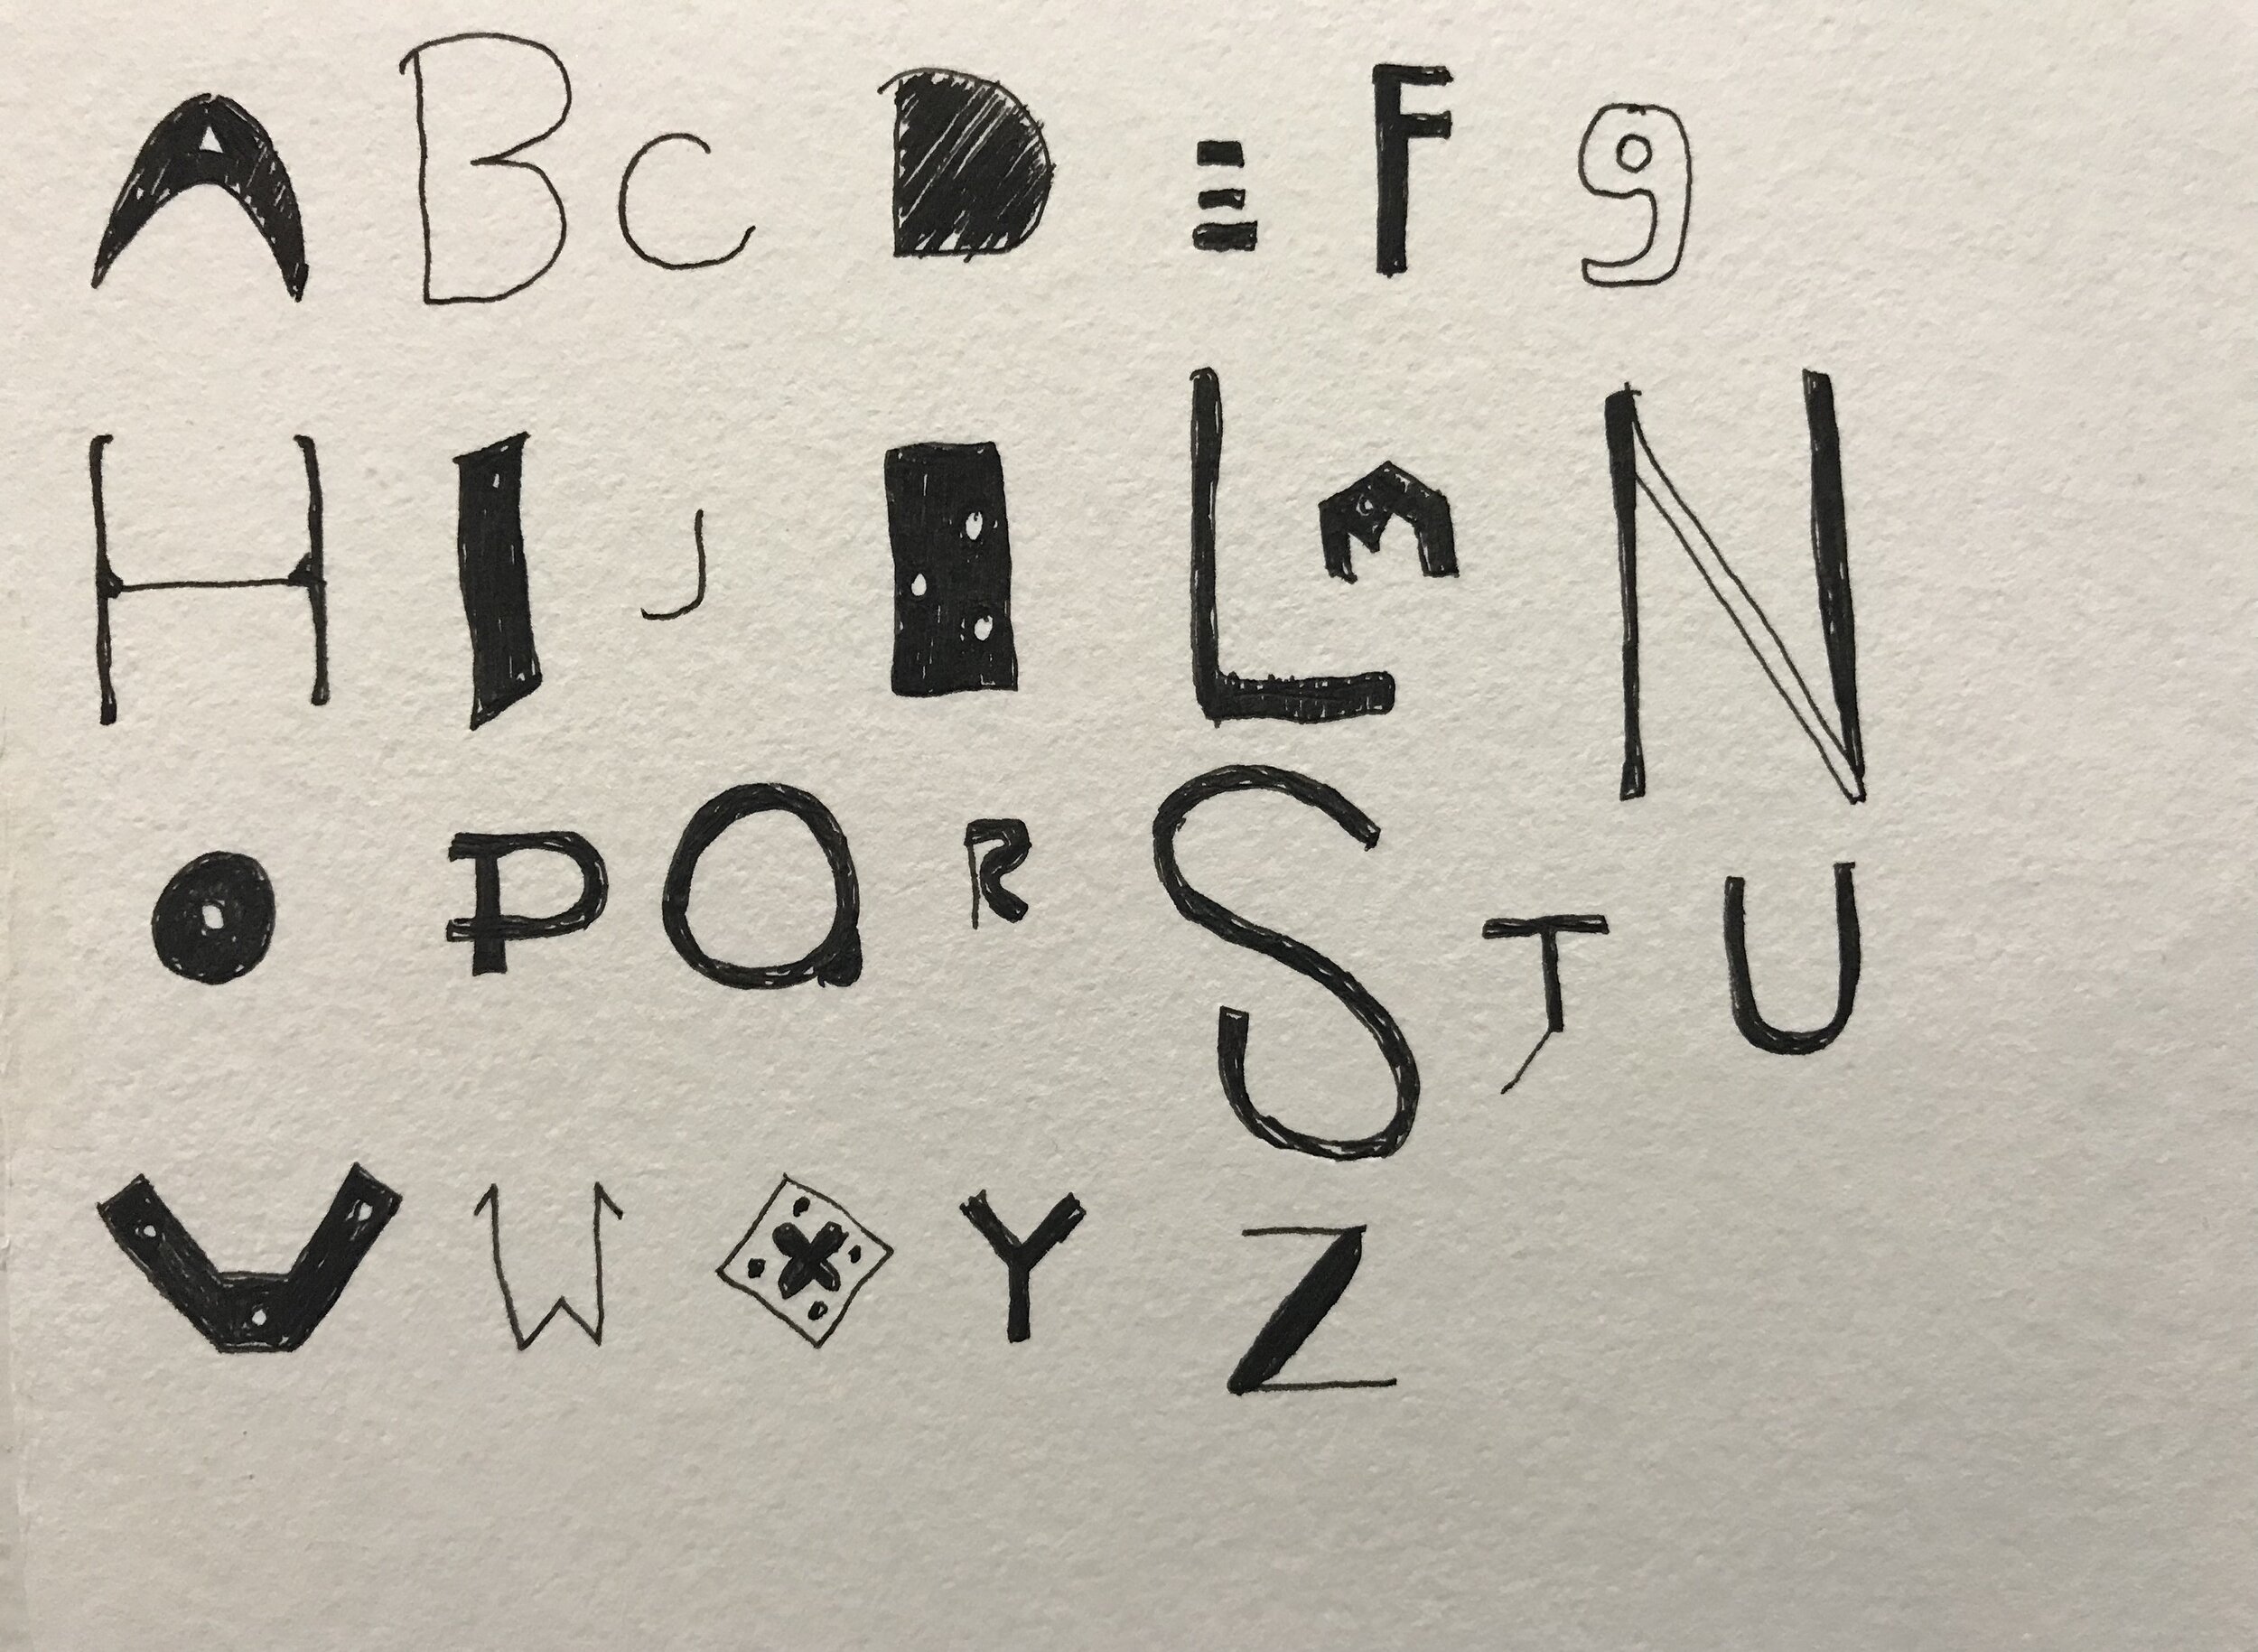 A B C D E F g
H I J K L M N
O P Q R S T U
V W X Y Z